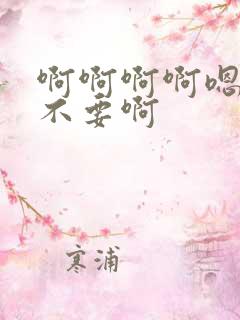 啊啊啊啊嗯
不要啊
寒浦